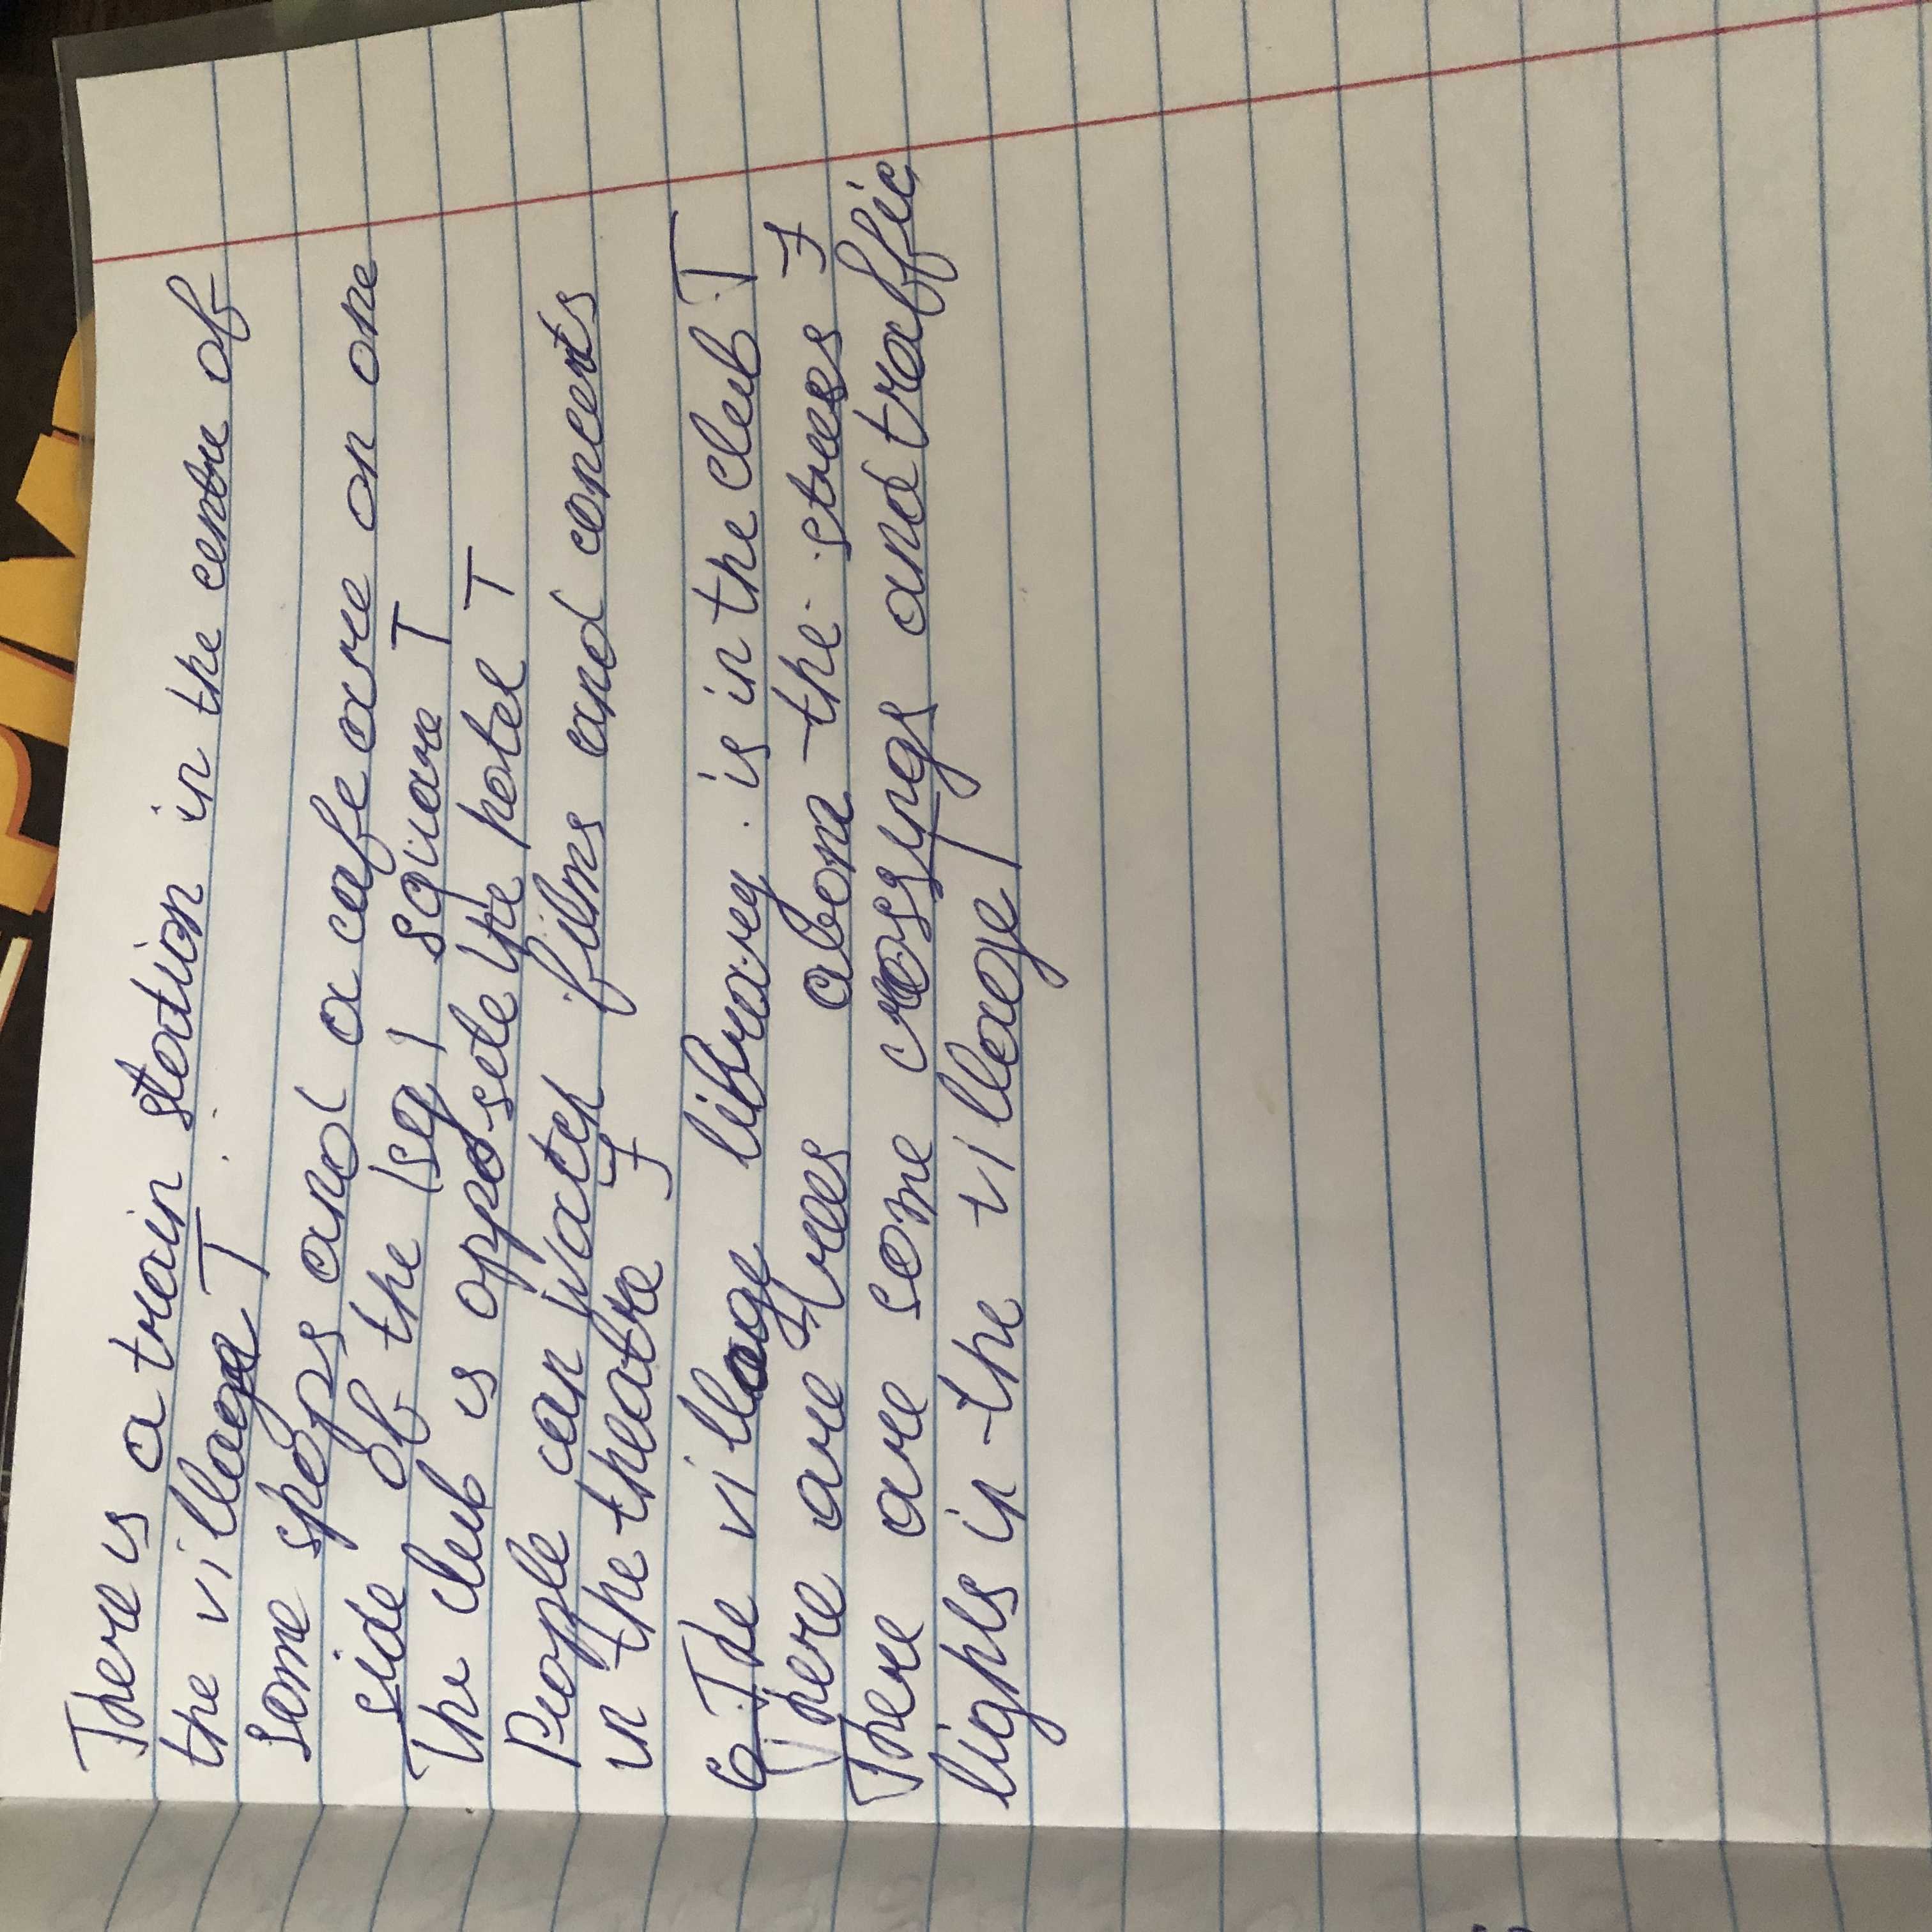 There is a train station in the centre of
the village T
some shops and a cafe are on one
side of the (sq) square T
The club is opposete the hotel T
People can watch films and concerts
in the theatre F
6 The village library is in the club T
There are trees abom the strees F
There are some crossyngs and traffic
lighs in the village